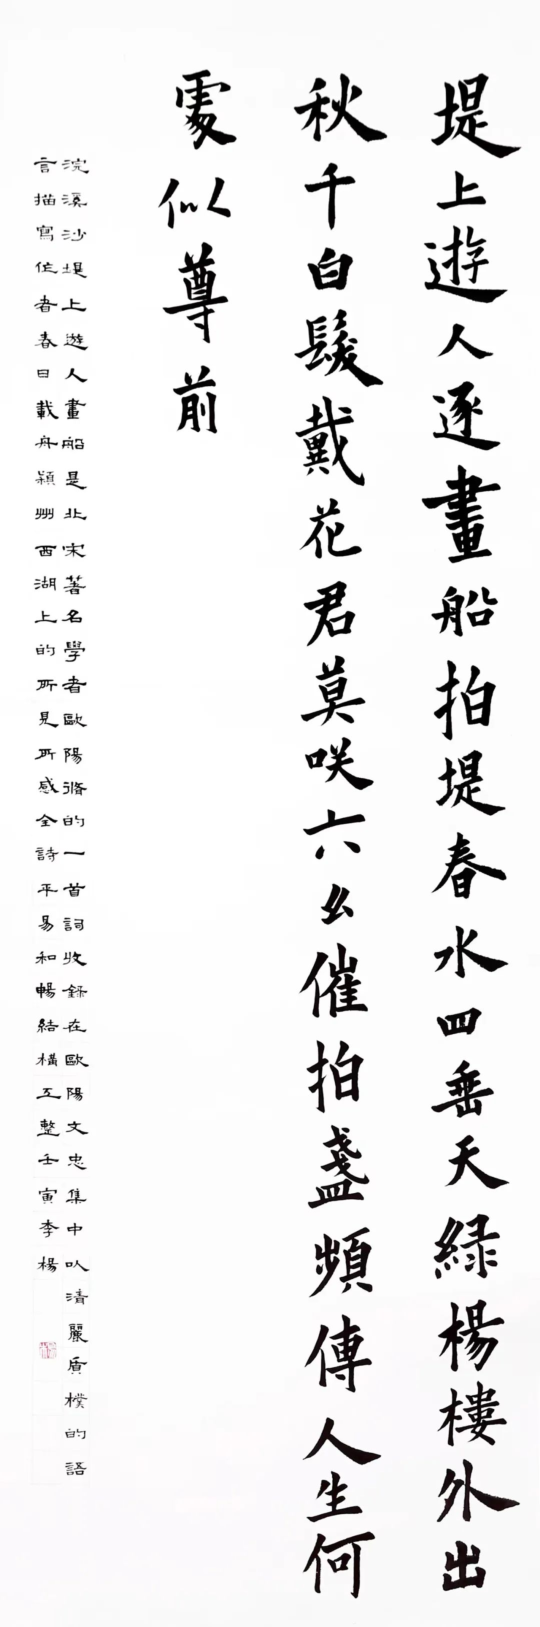 堤上遊人逐畫船拍堤春水四垂天綠楊樓外出
秋千白髮戴花君莫咲六幺催拍盞頻傳人生何
處似尊前
浣溪沙堤上遊人畫船是北宋著名學者歐陽脩的一首詞收錄在歐陽文忠集中以清麗質樸的語
言描寫作者春日載舟潁州西湖上的所見所感全詩平易和暢結構工整壬寅李楊